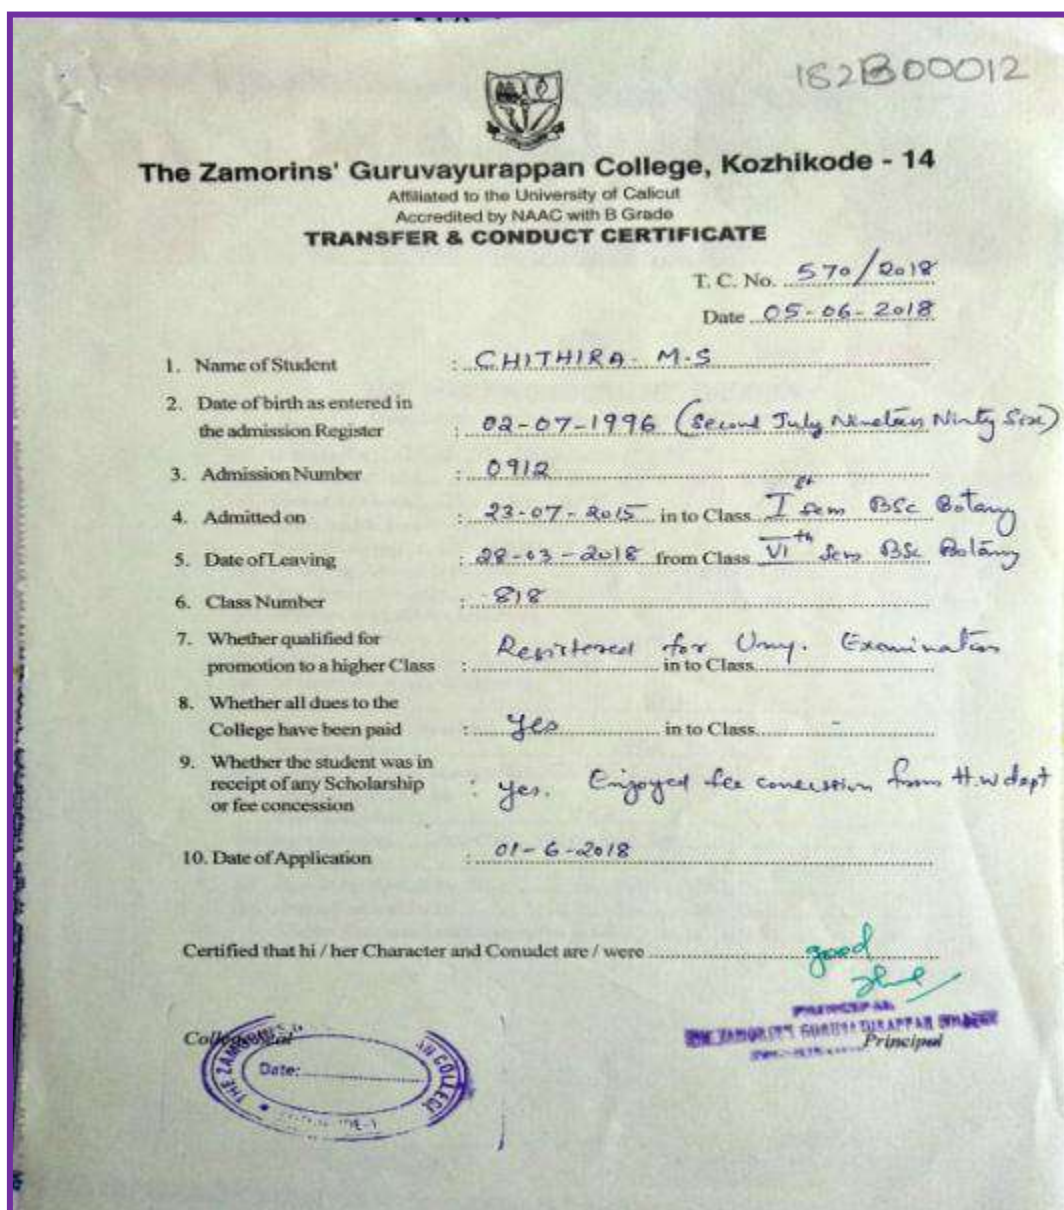 182B00012
The Zamorins' Guruvayurappan College, Kozhikode - 14
Affiliated to the University of Calicut
Accredited by NAAC with B Grade
TRANSFER & CONDUCT CERTIFICATE
T. C. No. 570/2018
Date 05-06-2018
1. Name of Student : CHITHIRA. M.S
2. Date of birth as entered in
the admission Register : 02-07-1996 (Second July Nineteen Ninty Six)
3. Admission Number : 0912
4. Admitted on : 23-07-2015 in to Class I st Sem BSc Botany
5. Date of Leaving : 28-03-2018 from Class VI th Sem BSc Botany
6. Class Number : 818
7. Whether qualified for
promotion to a higher Class : Registered for Uny. Examination in to Class
8. Whether all dues to the
College have been paid : yes in to Class -
9. Whether the student was in
receipt of any Scholarship : yes. Enjoyed fee concession from H.W dept
or fee concession
10. Date of Application : 01-6-2018
Certified that hi / her Character and Conudct are / were good
PRINCIPAL
College Seal
THE ZAMORIN'S GURUVAYURAPPAN COLLEGE
Principal
THE ZAMORIN'S AN COLLEGE
Date: